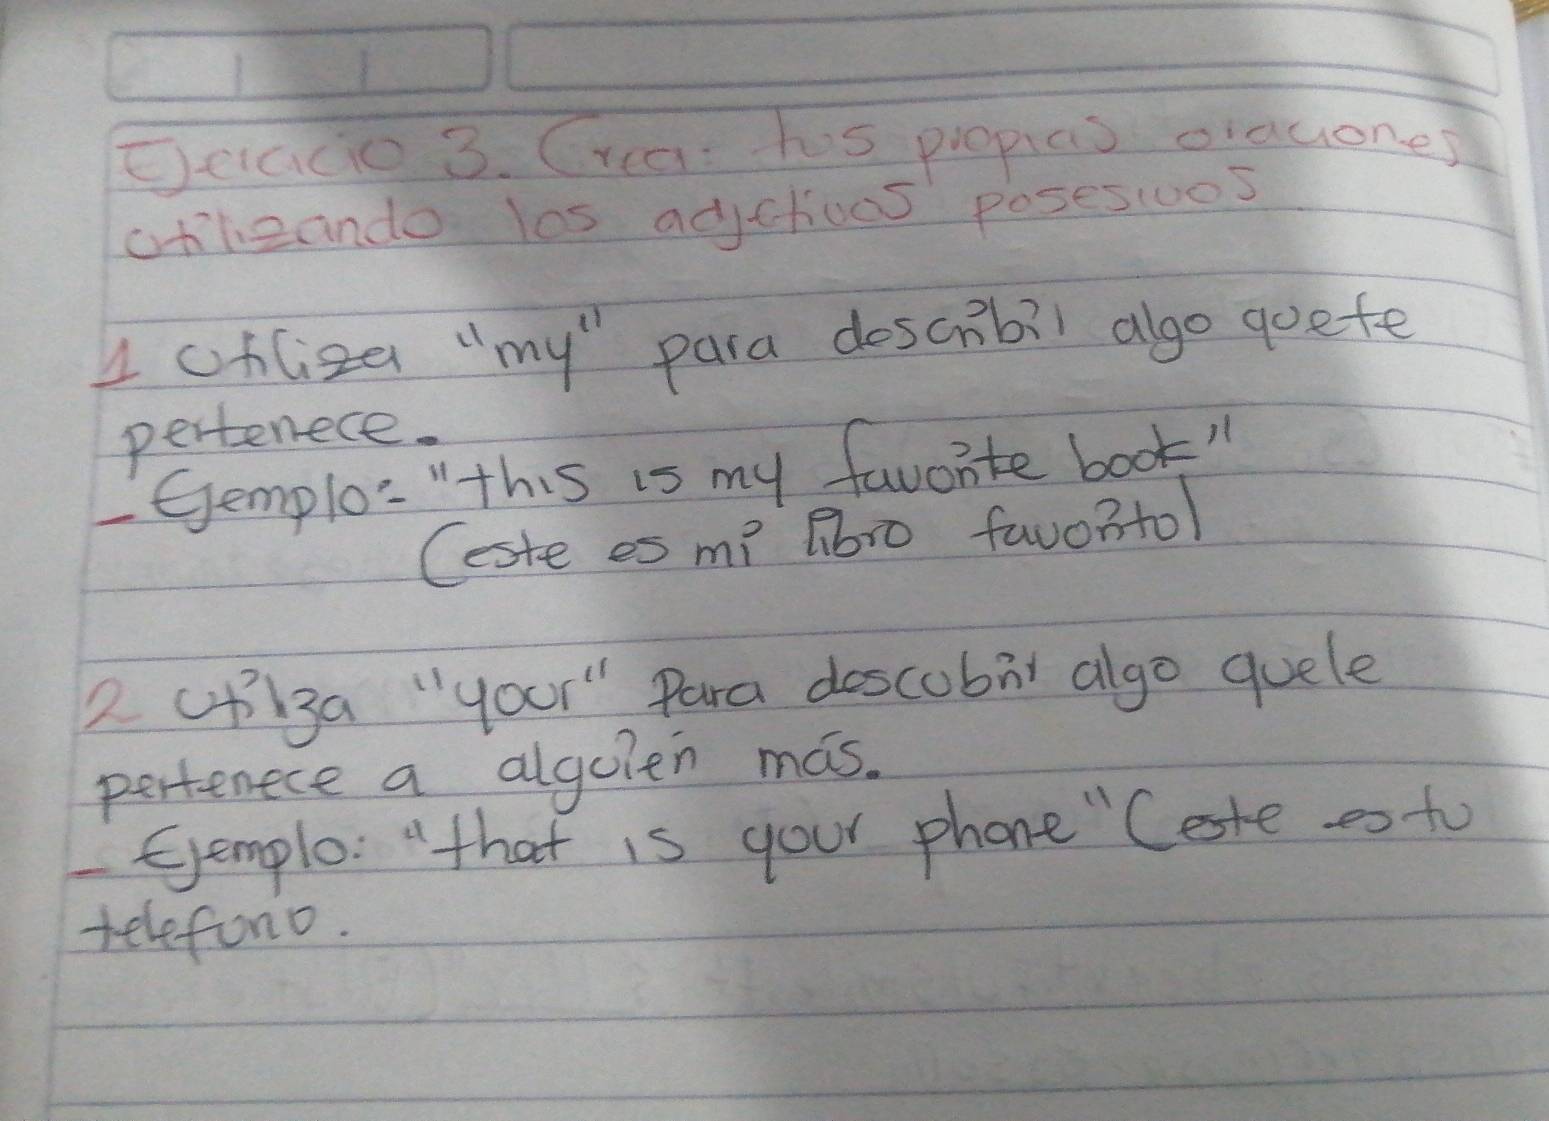 Ejercicio 3. Crea: tus propias oraciones
utilizando los adjctivos posesivos
1 Utiliza "my" para describir algo quete
pertenece.
- Ejemplo: "this is my favorite book"
(este es mi libro favorito)
2 Utilza "your" Para descubrir algo quele
pertenece a alguien más.
- Ejemplo: "that is your phone" (este es tu
telefono.